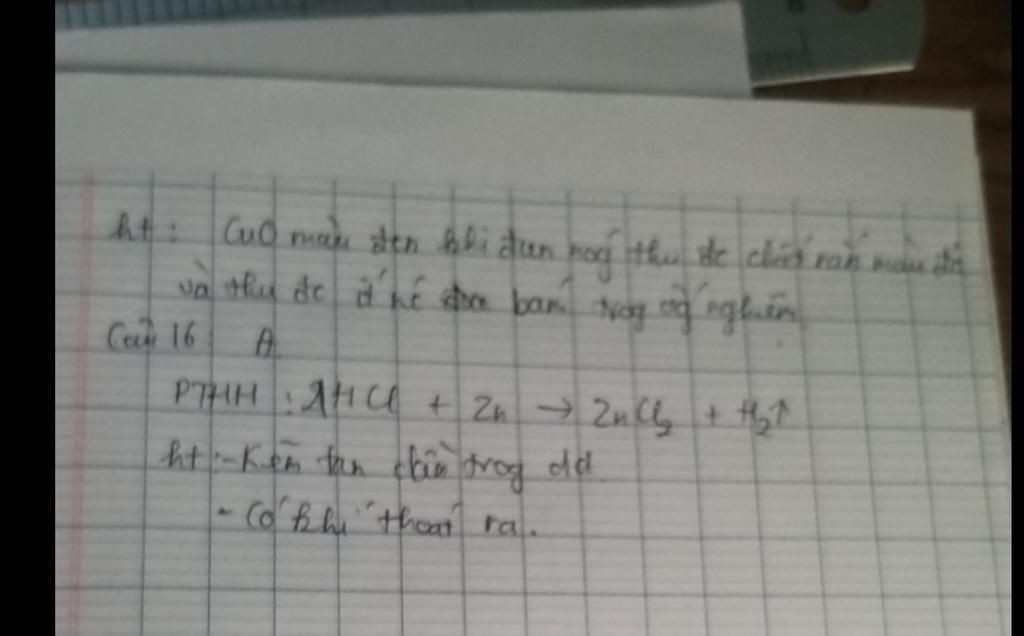 ht: CuO màu đen khi đun nog thu đc chất rắn màu đỏ
và thu đc bam trog ốg nghiệm
Câu 16 A
PTHH: 2HCl + Zn → ZnCl₂ + H₂↑
ht: - Kẽm tan dần trog dd
- Có khí thoát ra.